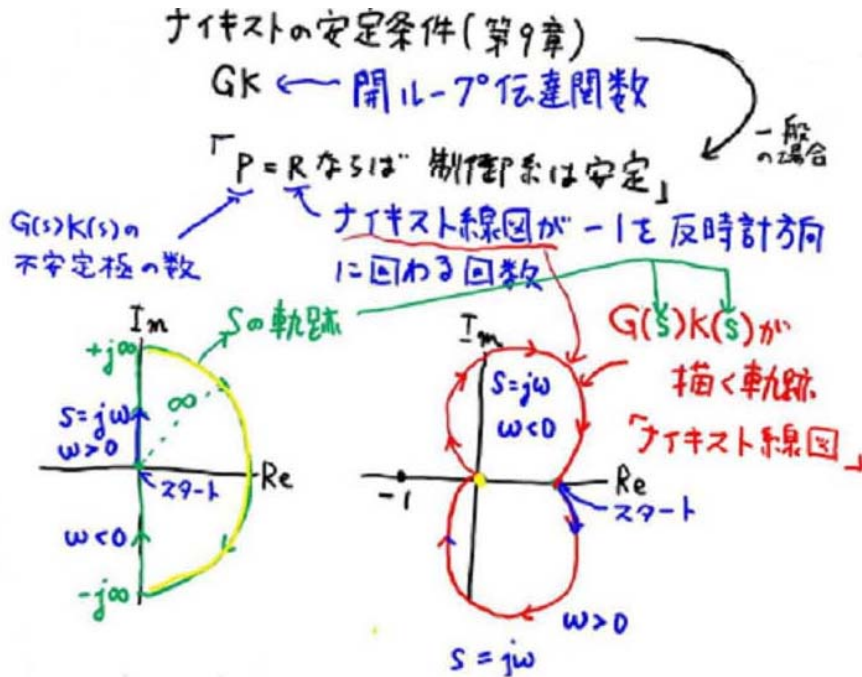 ナイキストの安定条件(第9章)
GK ← 開ループ伝達関数
一般の場合
「P = R ならば 制御系は安定」
G(s)K(s)の
不安定極の数
ナイキスト線図が -1を反時計方向
に回わる回数
Im
+j∞
Sの軌跡
∞
S=jω
ω>0
Re
スタート
ω<0
-j∞
Im
S=jω
ω<0
G(s)K(s)が
描く軌跡
「ナイキスト線図」
-1
Re
スタート
ω>0
S=jω